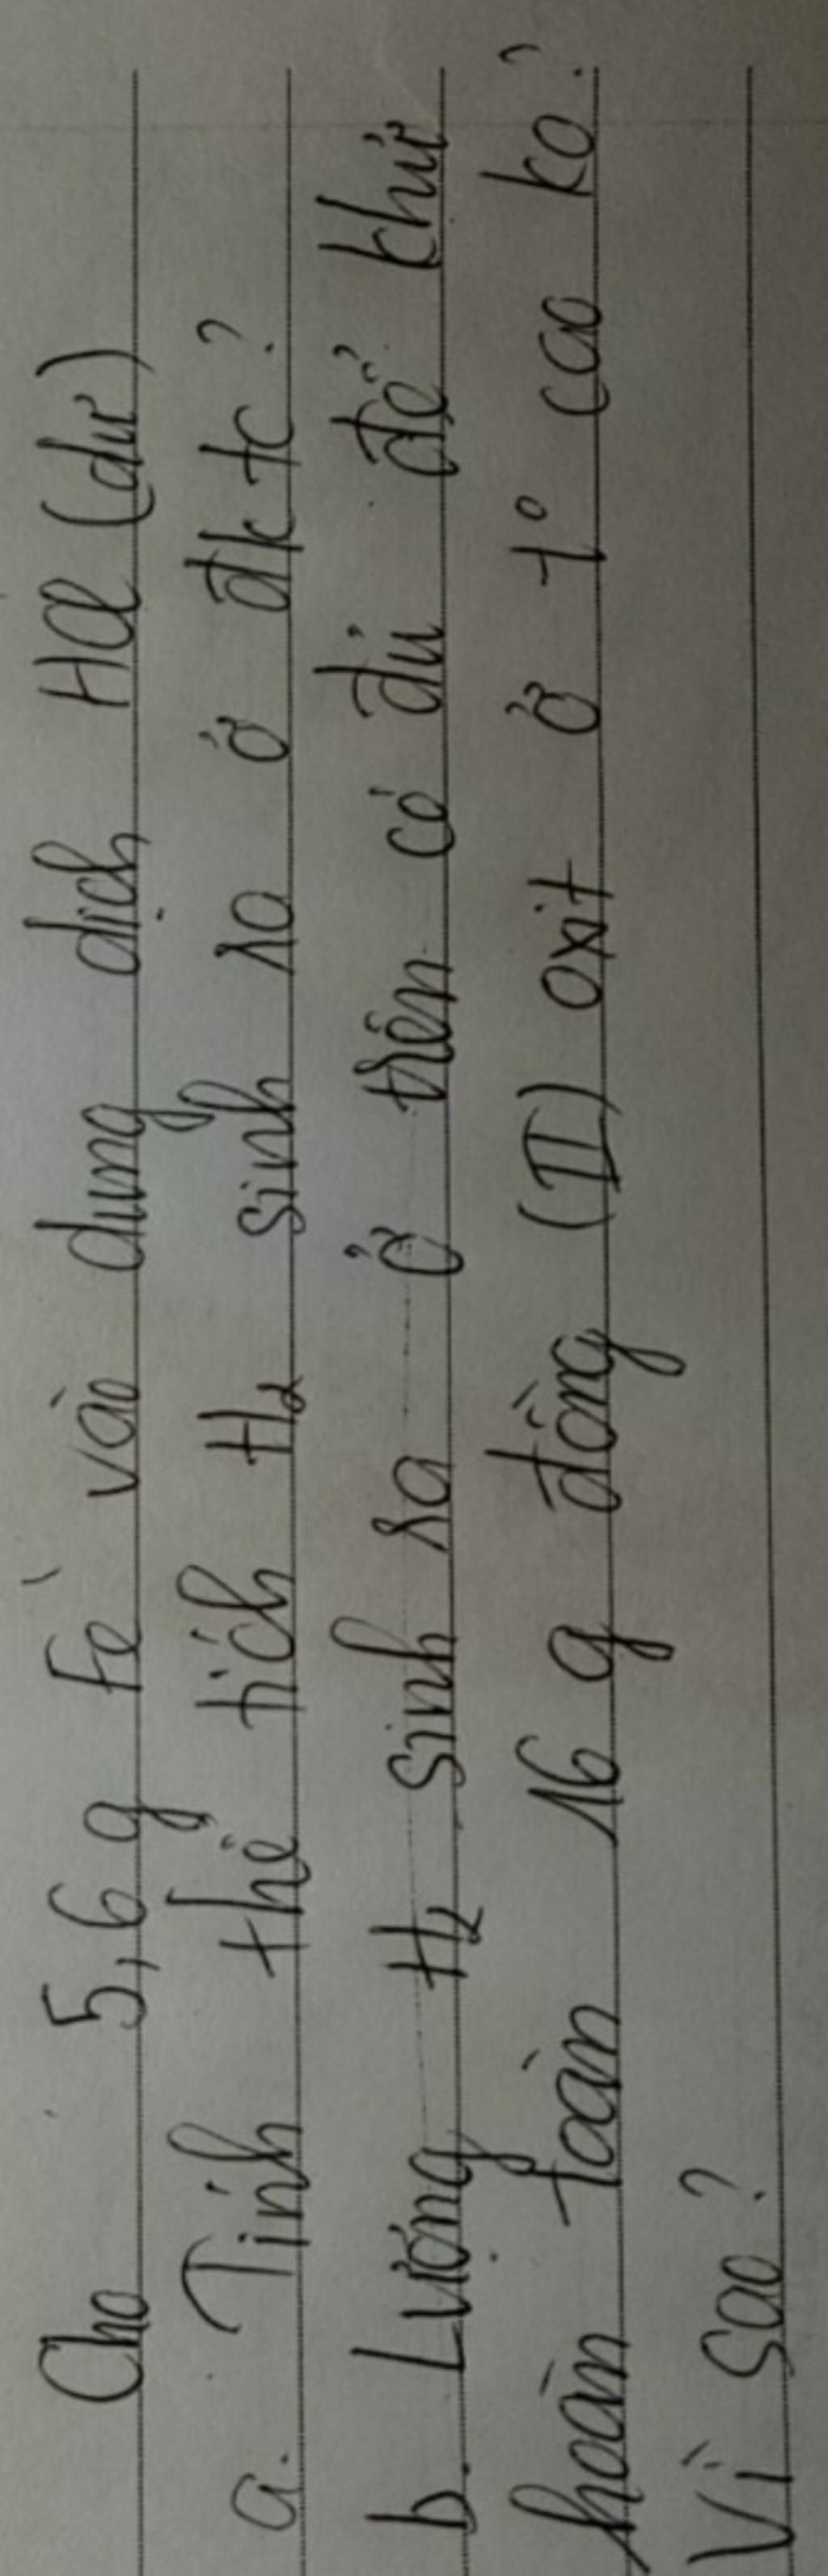 Cho 5,6 g Fe vào dung dịch HCl (dư)
a. Tính thể tích H₂ sinh ra ở đktc?
b. Lượng H₂ sinh ra ở trên có đủ để khử
hoàn toàn 16 g đồng (II) oxit ở t° cao ko?
Vì sao?